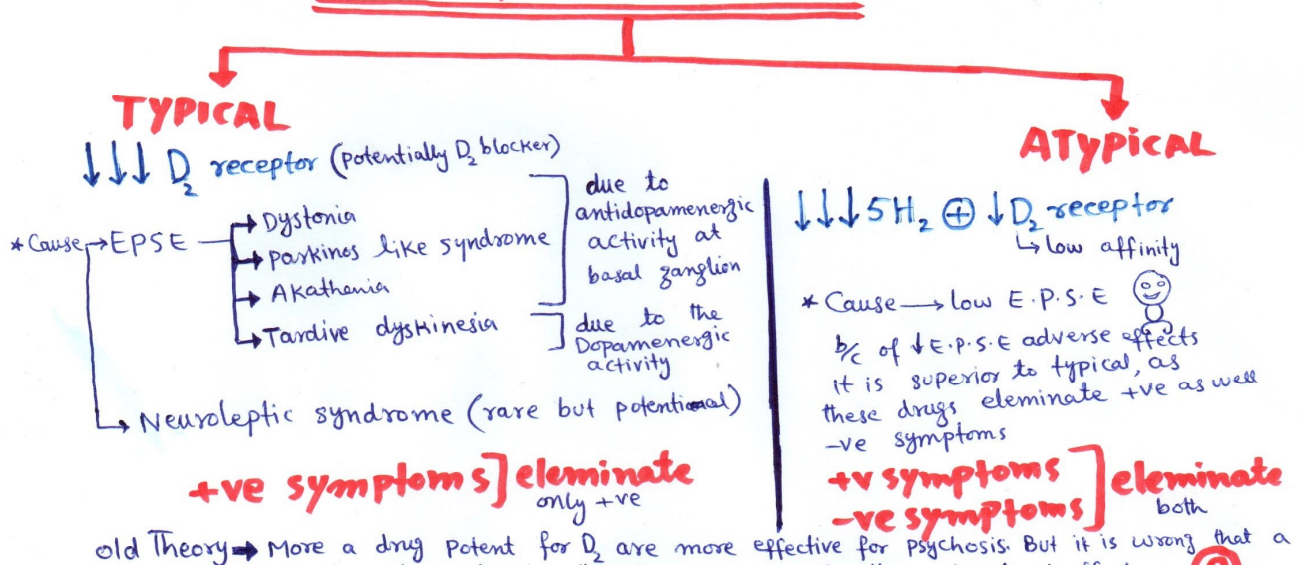 TYPICAL
↓↓↓ D₂ receptor (potentially D₂ blocker)
* Cause → EPSE
→ Dystonia
→ Parkinos like syndrome
→ Akathenia
→ Tardive dyskinesia
due to
antidopamenergic
activity at
basal ganglion
due to the
Dopamenergic
activity
→ Neuroleptic syndrome (rare but potential)
+ve symptoms] eleminate
only +ve
ATYPICAL
↓↓↓ 5H₂ ⊕ ↓D₂ receptor
↳ low affinity
* Cause → low E.P.S.E
b/c of ↓E.P.S.E adverse effects
it is superior to typical, as
these drugs eleminate +ve as well
-ve symptoms
+v symptoms
-ve symptoms] eleminate
both
old Theory → More a drug potent for D₂ are more effective for psychosis. But it is wrong that a